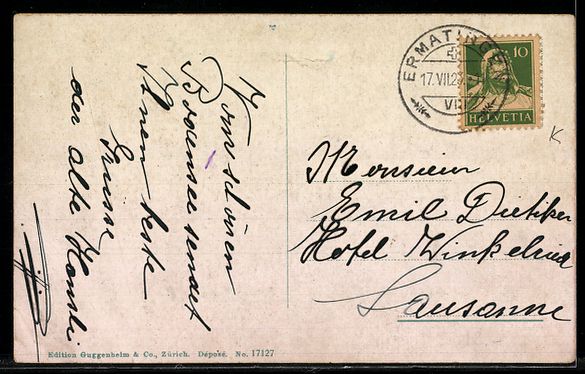 Vom schönen
Bodensee sendet
Ihnen beste
Grüsse
der alte Hansli
ERMATINGEN
17.VII.2
VII
10
HELVETIA
K
Monsieur
Emil Dietiker
Hotel Winkelried
Lausanne
Edition Guggenheim & Co., Zürich. Déposé. No. 17127